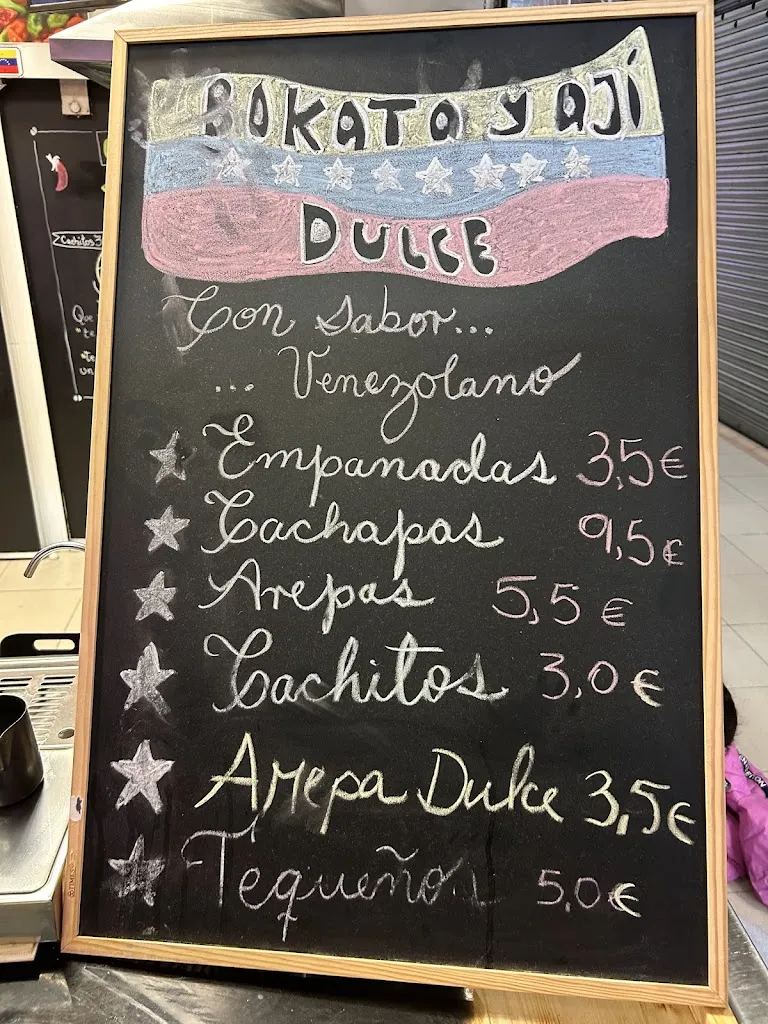 BOKATA Y AJÍ
DULCE
Con Sabor...
... Venezolano
Empanadas 3,5€
Cachapas 9,5€
Arepas 5,5€
Cachitos 3,0€
Arepa Dulce 3,5€
Tequeños 5,0€
Cachitos
Que